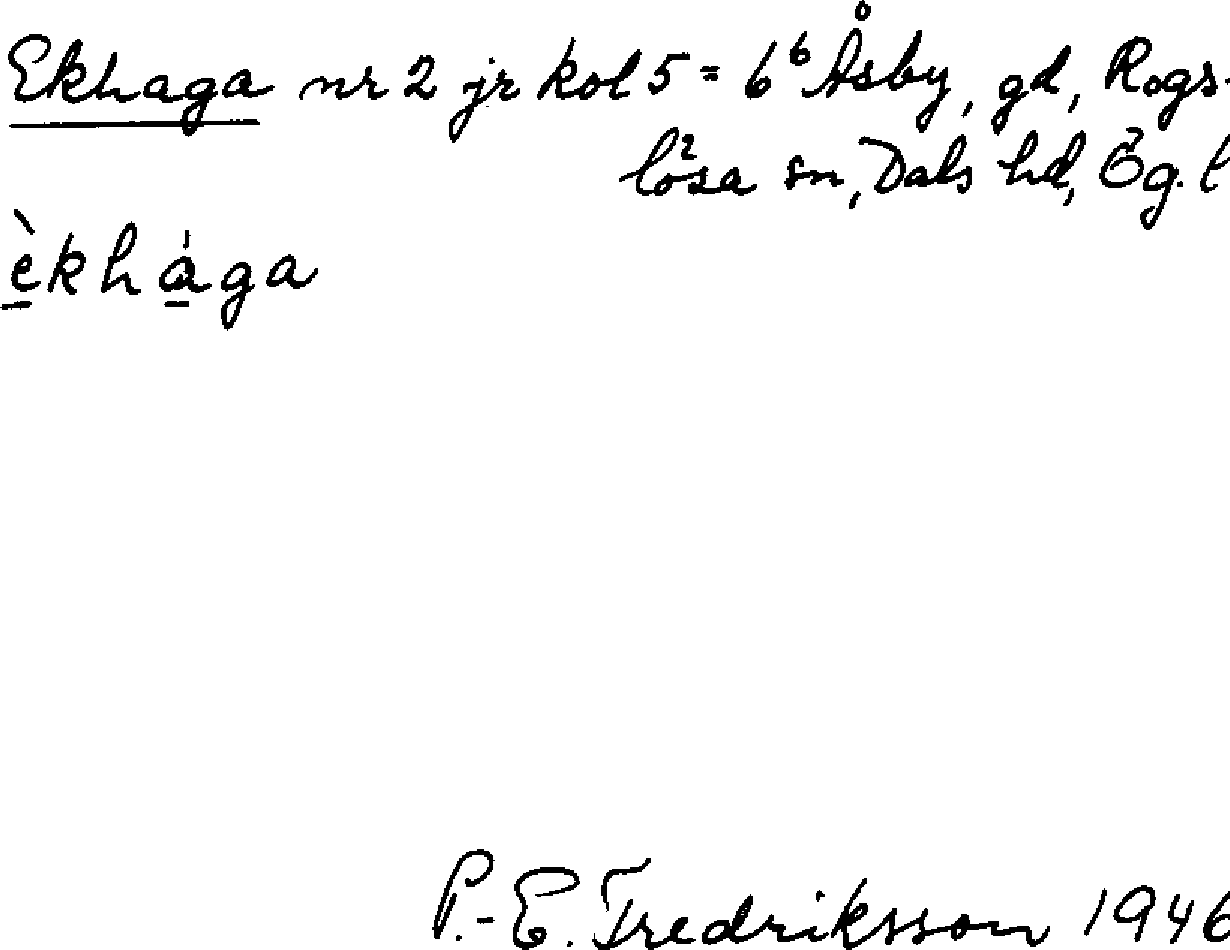 Ekhaga nr 2 jr kol 5 = 6⁶ Åsby, gd, Rogs-
lösa sn, Dals hd, Ög. l
èkhàga
P.-E. Fredriksson 1946